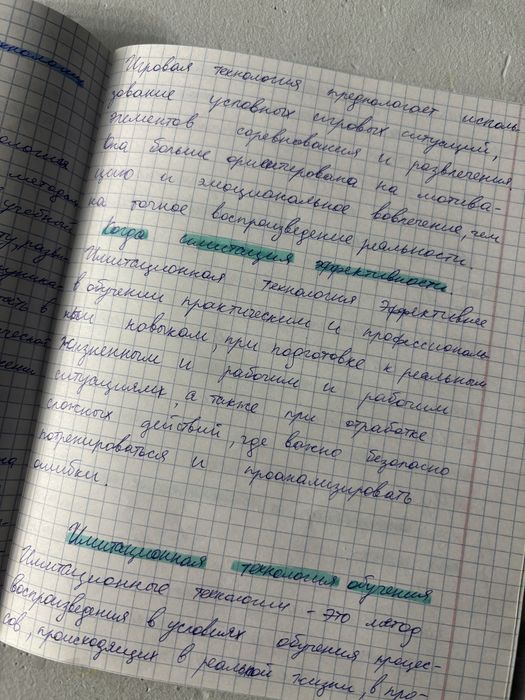 Игровая технология предполагает исполь
зование условных игровых ситуаций,
элементов соревнования и развлечения.
Она больше ориентирована на мотива-
цию и эмоциональное вовлечение, чем
на точное воспроизведение реальности.
Когда имитация эффективности
Имитационная технология эффективнее
в обучении практическим и профессиональ
ным навыкам, при подготовке к реальным
жизненным и рабочим и рабочим
ситуациям, а также при отработке
сложных действий, где важно безопасно
потренироваться и проанализировать
ошибки.
Имитационная технология обучения
Имитационные технологии - это метод
воспроизведения в условиях обучения процес-
сов, происходящих в реальной жизни, в про-